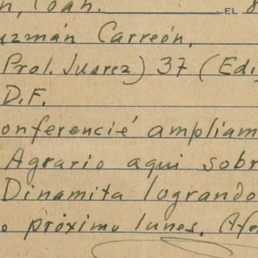 n, Coah. EL 8
uzmán Carreón,
Prol. Juarez) 37 (Edi
D.F.
onferencié ampliam
Agrario aqui sobr
Dinamita logrando
o próximo lunes. Afe